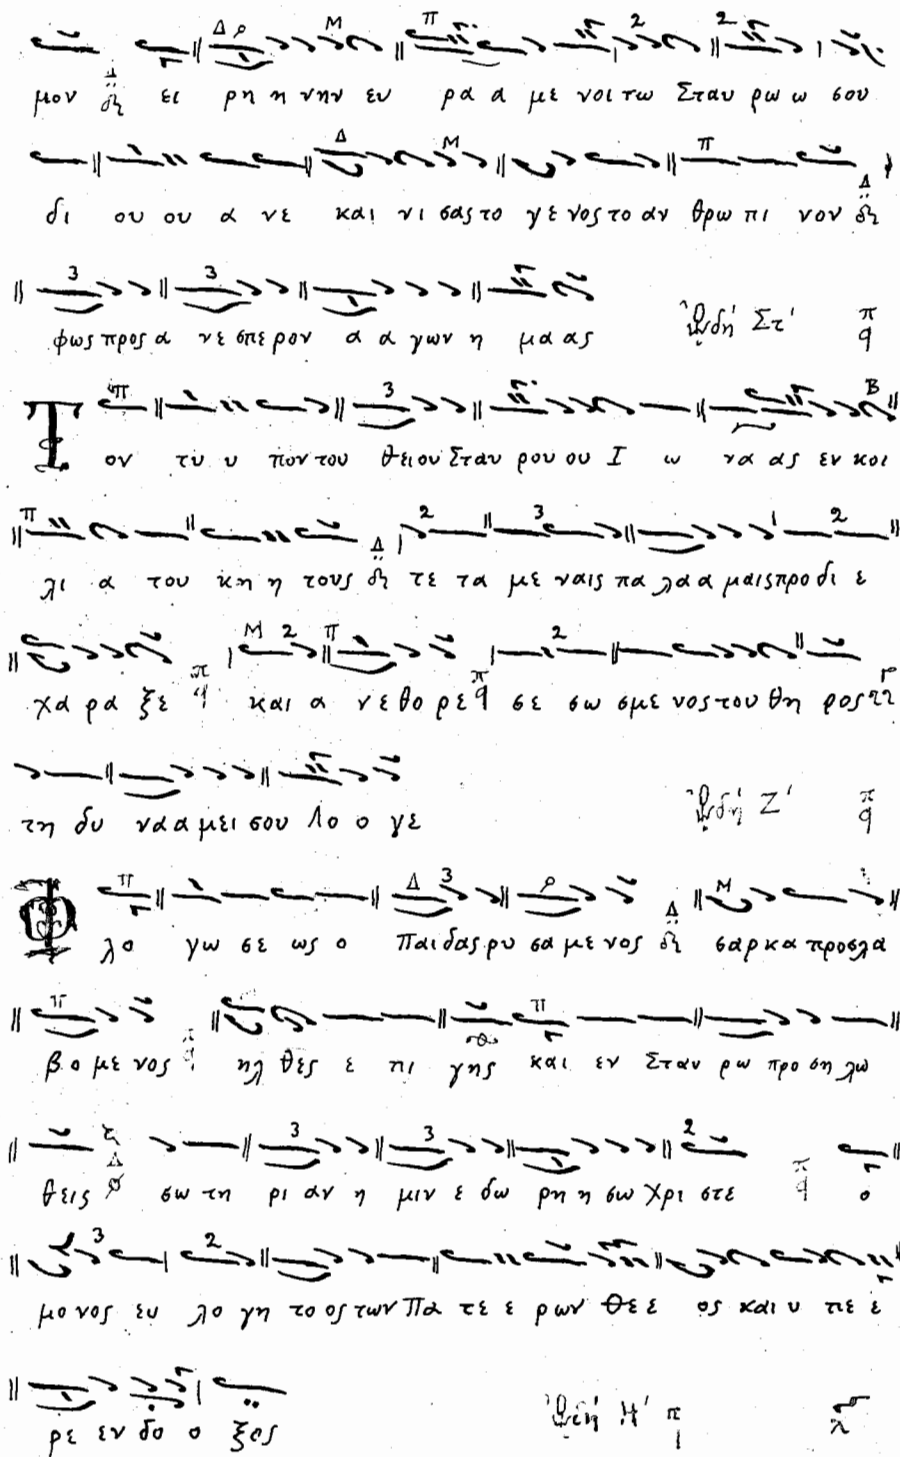 μον ει ρη η νην ευ ρα α με νοι τω Σταυ ρω ω σου
δι ου ου α νε και νι σας το γε νος το αν θρω πι νον
φως προς α νε σπε ρον α α γων η μα ας
Ὠδή Στ'
Τ ον τυ υ πον του θειου Σταυ ρου ου Ι ω να ας εν κοι
λι α του κη η τους τε τα με ναις πα λα α μαις προ δι ε
χα ρα ξε και α νε θο ρε σε σω σμε νος του θη ρος
τη δυ να α μει σου Λο ο γε
Ὠδή Ζ'
Φ λο γω σε ως ο παι δας ρυ σα με νος σαρ κα προσ λα
βο με νος ηλ θες ε πι γης και εν Σταυ ρω προ ση λω
θεις σω τη ρι αν η μιν ε δω ρη η σω Χρι στε ο
μο νος ευ λο γη το ος των Πα τε ε ρων Θε ε ος και υ πε ε
ρε εν δο ο ξος
Ὠδή Η'